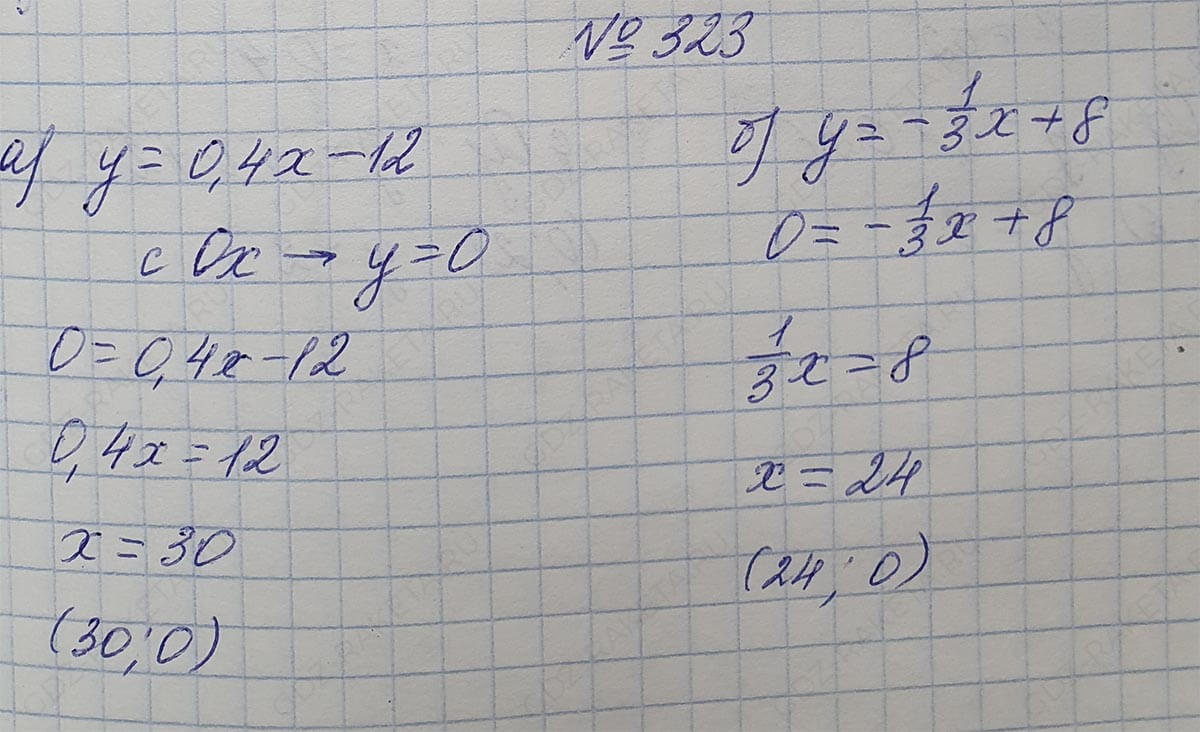 № 323
а) y = 0,4x − 12
с Ox → y = 0
0 = 0,4x − 12
0,4x = 12
x = 30
(30; 0)
б) y = −1/3 x + 8
0 = −1/3 x + 8
1/3 x = 8
x = 24
(24; 0)
GDZ-RAKETA.RU